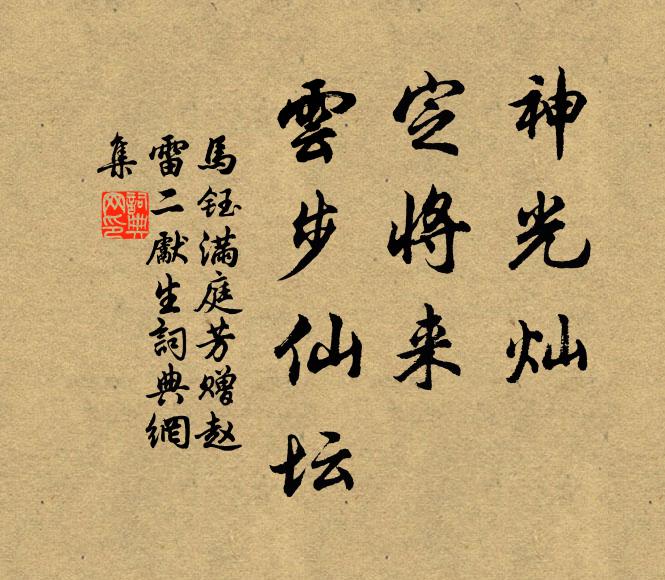 神光灿
定将来
雲步仙坛
馬鈺滿庭芳赠赵
雷二獻生詞典網
集
詞典网印